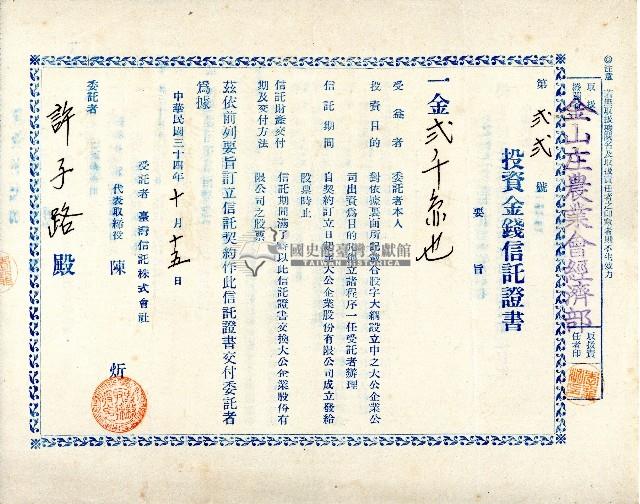 ◎注意 若無取扱機關名及取扱責任者之印章者則不生效力
取扱機關
金山庄農業會經濟部
取扱責任者印
投資金錢信託證書
第 弐弐 號
要旨
一金弐千
也
受益者 委託者本人
投資目的 對依據裏面所記
股份大綱設立中之大公企業公
司出資爲目的與
立諸程序一任受託者辦理
信託期間 自契約訂立日起
大公企業股份有限公司成立發給
股票時止
信託財產交付 信託期間滿了時以此信託證書交換大公企業股份有
期及交付方法 限公司之股票
茲依前列要旨訂立信託契約作此信託證書交付委託者
爲據
中華民國三十四年十月十五日
受託者 臺灣信託株式會社
代表取締役 陳 炘
委託者 許子路 殿
國史館臺灣文獻館
TAIWAN HISTORICA